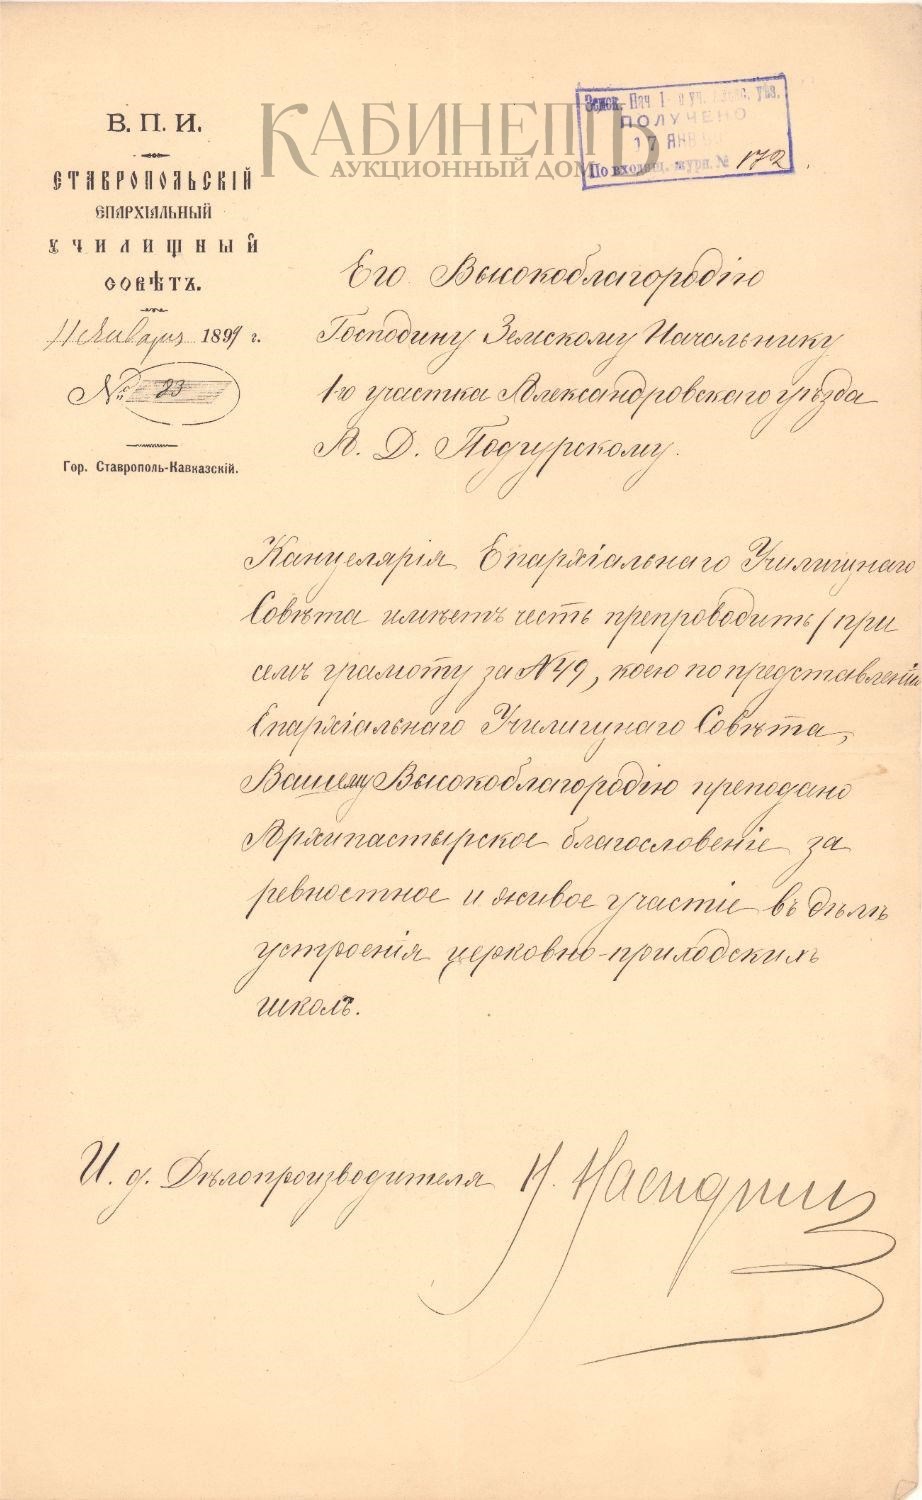 КАБИНЕТЪ
АУКЦИОННЫЙ ДОМ
Земск. Нач. 1-го уч. уѣз.
ПОЛУЧЕНО
17 ЯНВ
По входящ. журн. № 172
В. П. И.
СТАВРОПОЛЬСКІЙ
ЕПАРХІАЛЬНЫЙ
УЧИЛИЩНЫЙ
СОВѢТЪ.
11 Января 1899 г.
№ 23
Гор. Ставрополь-Кавказскій.
Его Высокоблагородію
Господину Земскому Начальнику
1-го участка Александровскаго уѣзда
А. Д. Подгурскому.
Канцелярія Епархіальнаго Училищнаго
Совѣта имѣетъ честь препроводить при
семъ грамоту за № 49, коею по представленію
Епархіальнаго Училищнаго Совѣта,
Вашему Высокоблагородію преподано
Архипастырское благословеніе за
ревностное и живое участіе въ дѣлѣ
устроенія церковно-приходскихъ
школъ.
И. д. Дѣлопроизводителя Н.